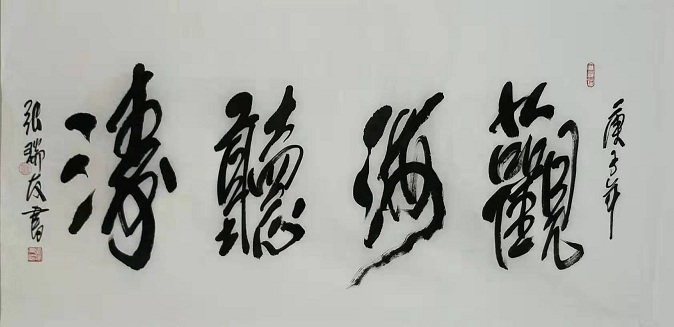 庚子年
觀海聽濤
張瑞友書